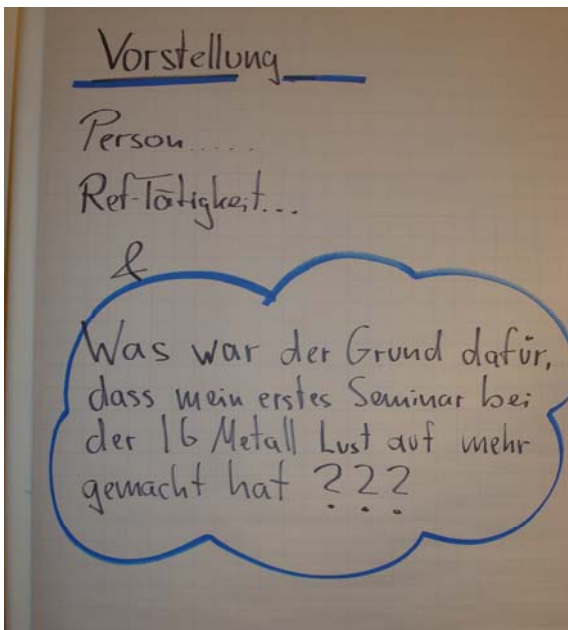 Vorstellung
Person.....
Ref-Tätigkeit...
&
Was war der Grund dafür,
dass mein erstes Seminar bei
der IG Metall Lust auf mehr
gemacht hat ???